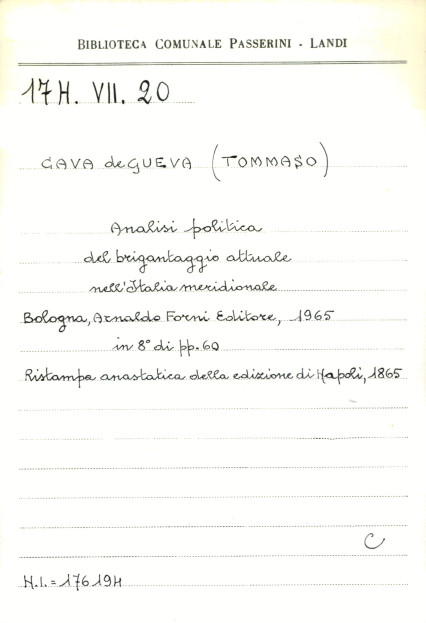 BIBLIOTECA COMUNALE PASSERINI - LANDI
17H. VII. 20
CAVA de GUEVA (TOMMASO)
Analisi politica
del brigantaggio attuale
nell'Italia meridionale
Bologna, Arnaldo Forni Editore, 1965
in 8° di pp. 60
Ristampa anastatica della edizione di Napoli, 1865
C
N.I. = 176194